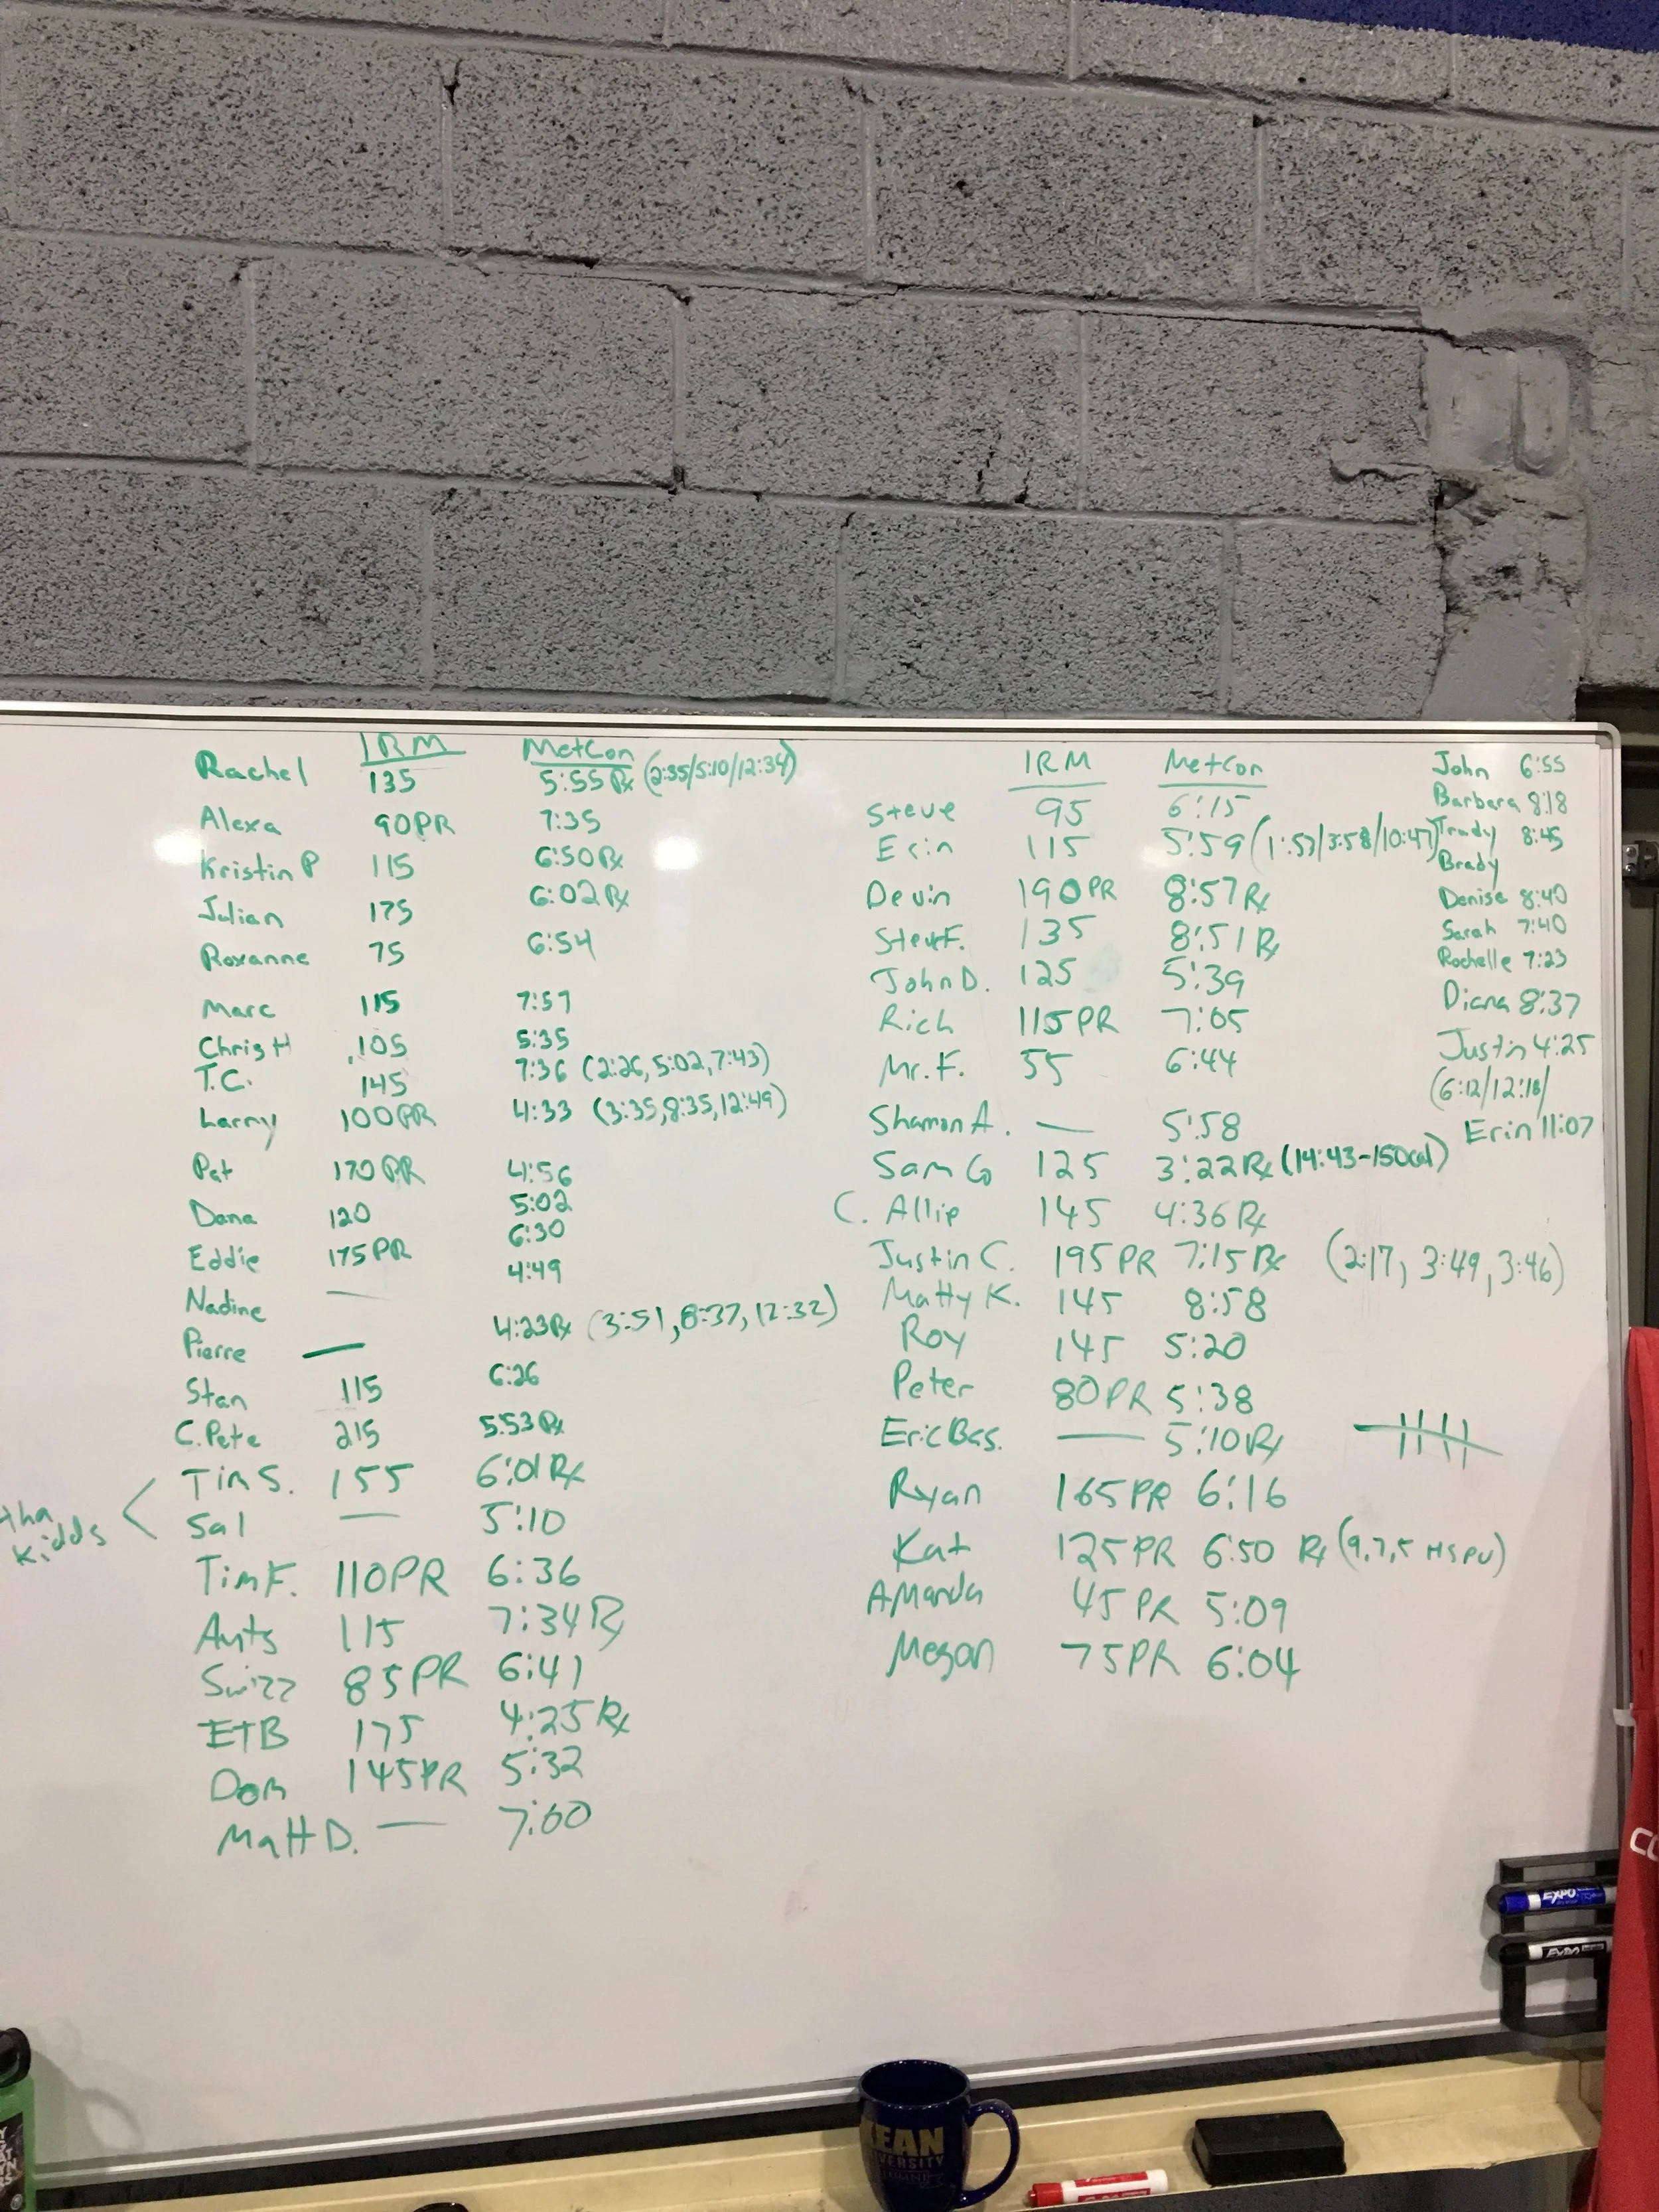 1RM MetCon
Rachel 135 5:55 Rx (2:35/5:10/12:34)
Alexa 90PR 7:35
Kristin P 115 6:50 Rx
Julian 175 6:02 Rx
Roxanne 75 6:54
Marc 115 7:57
Chris H 105 5:35
T.C. 145 7:36 (2:26, 5:02, 7:43)
Larry 100PR 4:33 (3:35, 8:35, 12:49)
Pat 170PR 4:56
Dana 120 5:02
Eddie 175PR 6:30
Nadine — 4:49
Pierre — 4:23 Rx (3:51, 8:37, 12:32)
Stan 115 6:26
C. Pete 215 5:53 Rx
tha kidds
Tim S. 155 6:01 Rx
Sal — 5:10
Tim F. 110PR 6:36
Ants 115 7:34 Rx
Swizz 85PR 6:41
ETB 175 4:25 Rx
Dom 145PR 5:32
Matt D. — 7:00
1RM MetCon
Steve 95 6:15
Erin 115 5:59 (1:53/3:58/10:47)
Devin 190PR 8:57 Rx
Steve F. 135 8:51 Rx
John D. 125 5:39
Rich 115PR 7:05
Mr. F. 55 6:44
Shannon A. — 5:58
Sam G 125 3:22 Rx (14:43-150cal)
C. Allie 145 4:36 Rx
Justin C. 195PR 7:15 Rx (2:17, 3:49, 3:46)
Matty K. 145 8:58
Roy 145 5:20
Peter 80PR 5:38
Eric Bas. — 5:10 Rx
Ryan 165PR 6:16
Kat 125PR 6:50 Rx (9,7,5 HSPU)
Amanda 45PR 5:09
Megan 75PR 6:04
John 6:55
Barbara 8:18
Trudy 8:45
Brady
Denise 8:40
Sarah 7:40
Rochelle 7:23
Diana 8:37
Justin 4:25
(6:12/12:18/
Erin 11:07
EXPO
EXPO
KEAN
UNIVERSITY